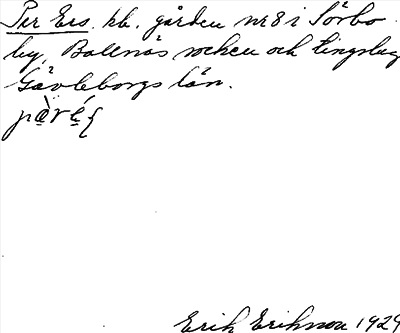 Per Ers. hb. gården nr 8 i Sörbo
by, Bollnäs socken och tingslag
Gävleborgs län.
Erik Eriksson 1929